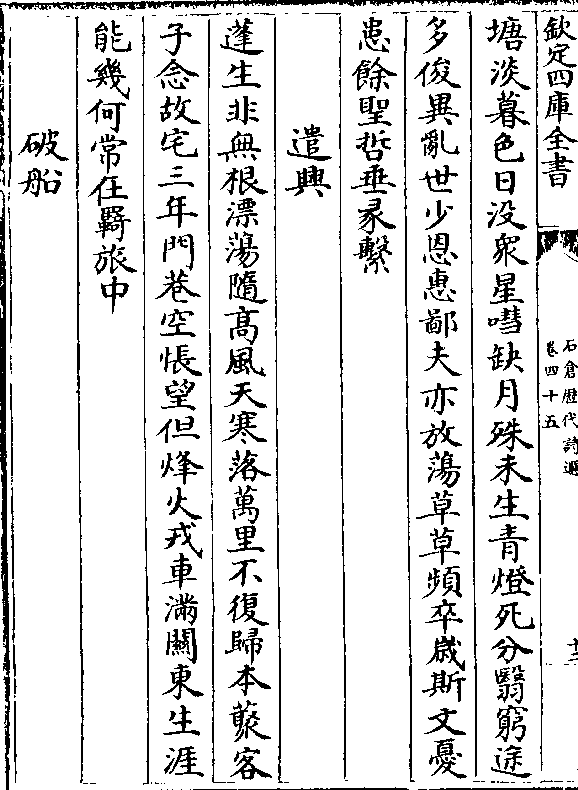 欽定四庫全書
石倉歷代詩選
卷四十五
十二
塘淡暮色日没衆星嘒缺月殊未生青燈死分翳窮途
多俊異亂世少恩惠鄙夫亦放蕩草草頻卒歲斯文憂
患餘聖哲垂彖繫
遣興
蓬生非無根漂蕩隨髙風天寒落萬里不復歸本藂客
子念故宅三年門巷空悵望但烽火戎車滿關東生涯
能幾何常在羇旅中
破船